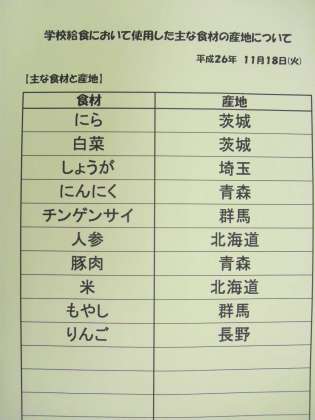 学校給食において使用した主な食材の産地について
平成26年 11月18日(火)
【主な食材と産地】
食材 産地
にら 茨城
白菜 茨城
しょうが 埼玉
にんにく 青森
チンゲンサイ 群馬
人参 北海道
豚肉 青森
米 北海道
もやし 群馬
りんご 長野